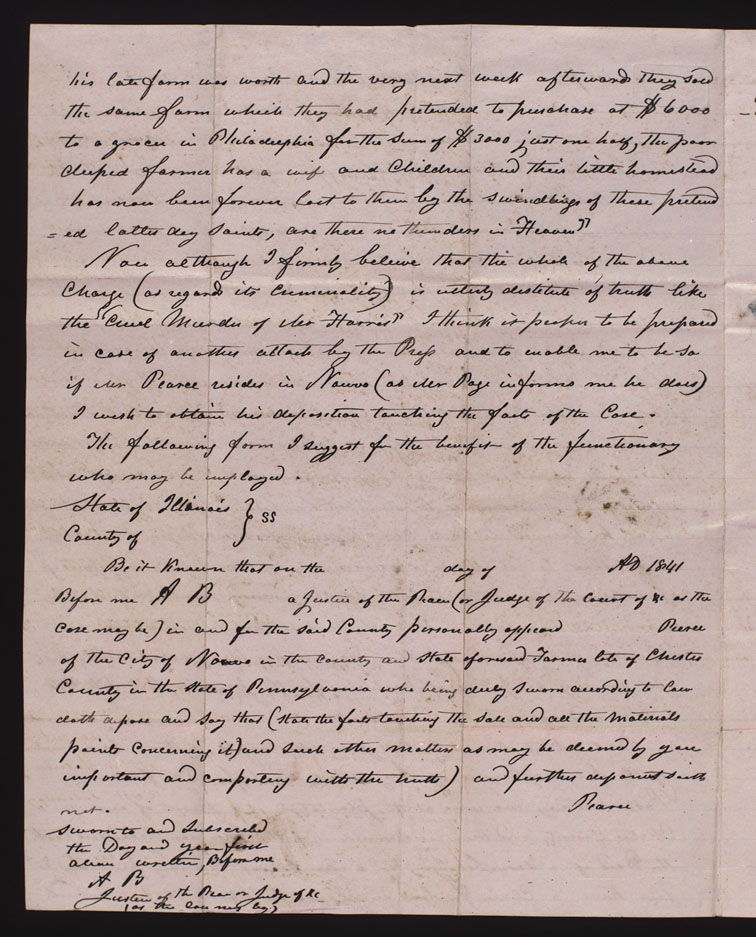 his late farm was worth and the very next week afterwards they sold
the same farm which they had pretended to purchase at $6000
to a grocer in Philadelphia for the sum of $3000 just one half, the poor
duped farmer has a wife and Children and their little homestead
has now been forever lost to them by the swindlings of these pretend
=ed latter day saints, are there no thunders in Heaven"
Now although I firmly believe that the whole of the above
Charge (as regards its Criminality) is utterly destitute of truth like
the "Cruel Murder of Mr Harris" I think it proper to be prepared
in case of another attack by the Press and to enable me to be so
if Mr Pearce resides in Nauvo (as Mr Page informs me he does)
I wish to obtain his deposition touching the facts of the Case.
The following form I suggest for the benefit of the functionary
who may be employed.
State of Illinois } SS
County of
Be it Known that on the day of AD 1841
Before me A B a Justice of the Peace (or Judge of the Court of &c as the
case may be) in and for the said County personally appeared Pierce
of the City of Nauvo in the county and state aforesaid Farmer late of Chester
County in the state of Pennsylvania who being duly sworn according to law
doth depose and say that (state the facts touching the sale and all the materials
points concerning it) and such other matters as may be deemed by you
important and comporting with the truth) and further deponent saith
not. Pearce
Sworn to and Subscribed
the Day and year first
above written, Before me
A B
Justice of the Peace or Judge of &c
(as the case may be)